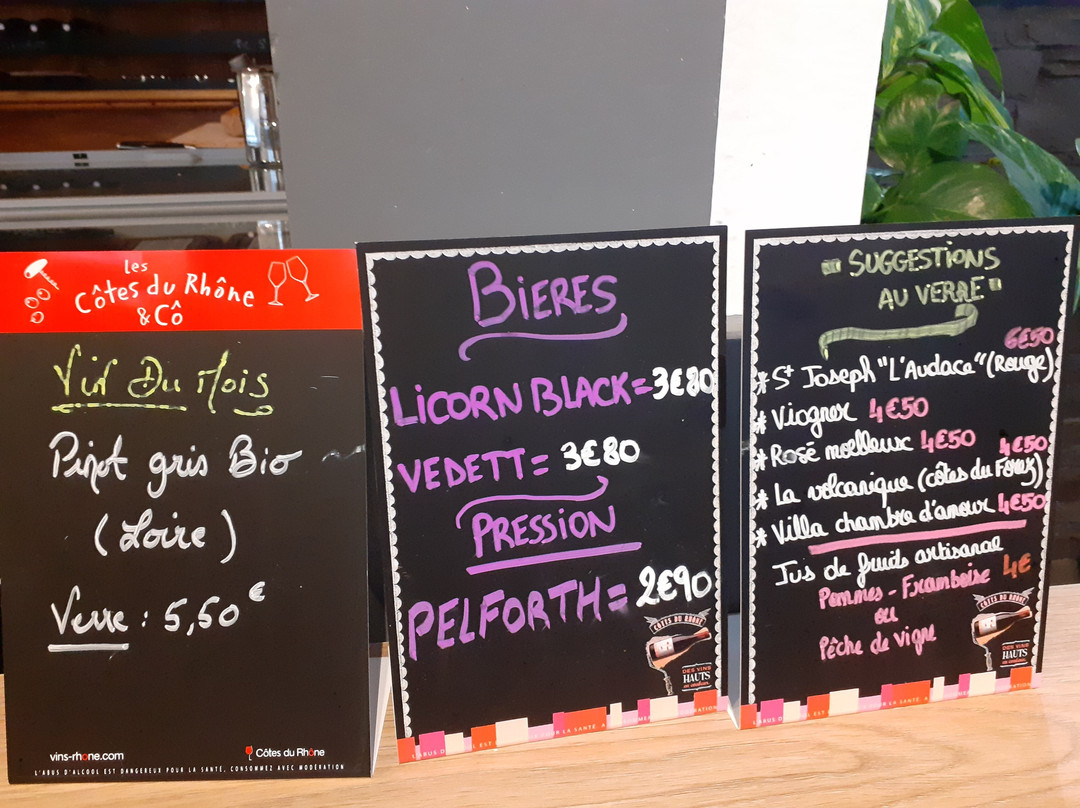 les
Côtes du Rhône
& Cô
Vin Du Mois
Pinot gris Bio
(Loire)
Verre : 5,50 €
vins-rhone.com
Côtes du Rhône
L'ABUS D'ALCOOL EST DANGEREUX POUR LA SANTÉ, CONSOMMEZ AVEC MODÉRATION
BIERES
LICORN BLACK = 3€80
VEDETT = 3€80
PRESSION
PELFORTH = 2€90
CÔTES DU RHÔNE
DES VINS
HAUTS
en couleurs
L'ABUS D' EST LA SANTÉ, A
SUGGESTIONS
AU VERRE
6€50
* St Joseph "L'Audace" (Rouge)
* Viogner 4€50
* Rosé moelleux 4€50
* La volcanique (côtes du Forez) 4€50
* Villa chambre d'amour 4€50
Jus de fruids artisanal
Pommes - Framboise 4€
ou
Pêche de vigne
CÔTES DU RHÔNE
DES VINS
HAUTS
en couleurs
L'ABUS D' EST POUR LA SANTÉ, A